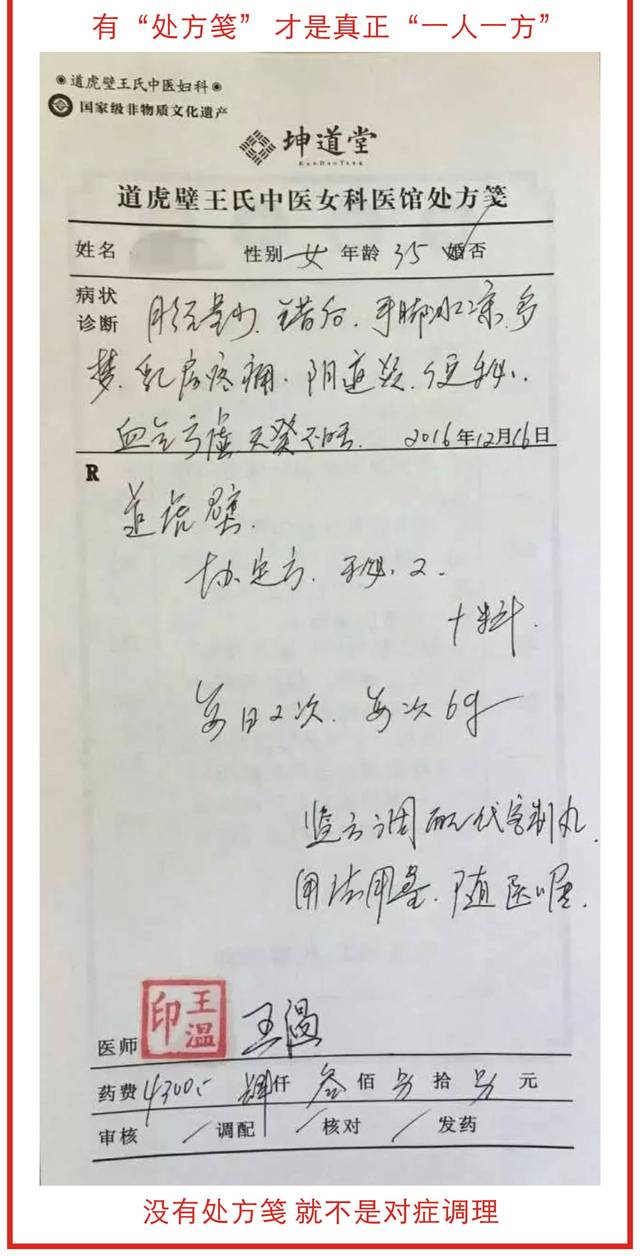 有“处方笺” 才是真正“一人一方”
道虎壁王氏中医妇科
国家级非物质文化遗产
坤道堂
KunDaoTang
道虎壁王氏中医女科医馆处方笺
姓名 性别 女 年龄 35 婚否
病状 月经量少. 错后. 手脚冰凉. 多
诊断
梦. 乳房疼痛. 阴道炎. 便秘.
血气亏虚. 天癸不时. 2016年12月16日
R
道虎壁.
协定方. 秘. 2.
十料.
每日2次. 每次6g
监方调配代客制丸.
用法用量. 随医嘱.
医师 王温印 王温
药费 4300 肆仟 叁佰 拾 元
审核 调配 核对 发药
没有处方笺 就不是对症调理